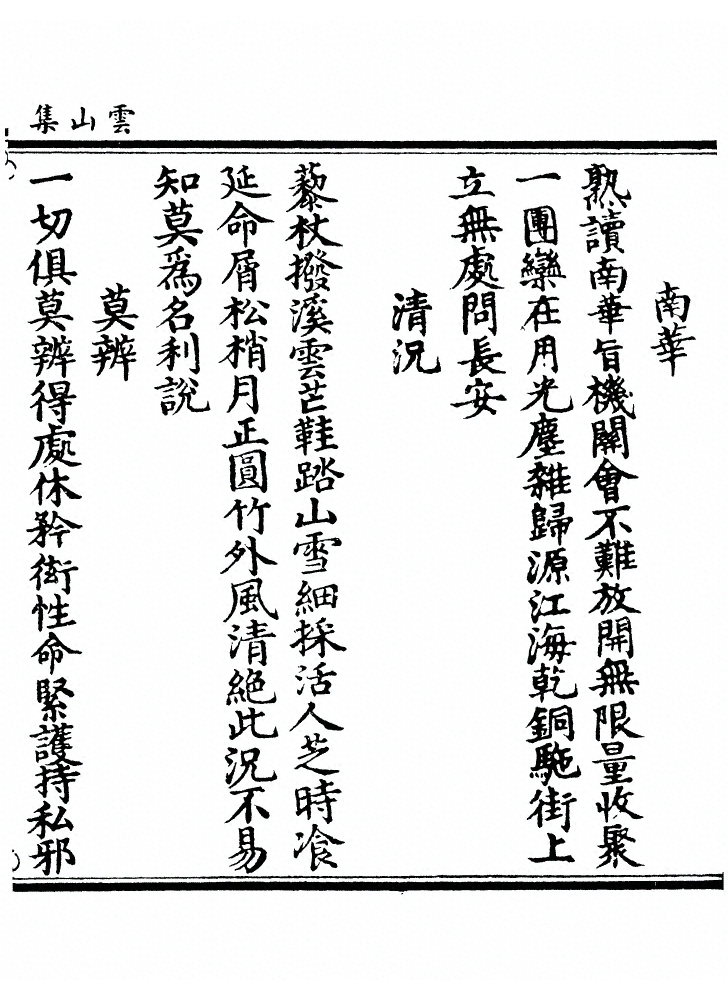 雲山集
南華
熟讀南華旨機關會不難放開無限量收聚
一團欒在用光塵雜歸源江海乾銅駞街上
立無處問長安
清況
藜杖撥溪雲芒鞋踏山雪細採活人芝時飡
延命屑松梢月正圓竹外風清絶此況不易
知莫爲名利說
莫辨
一切俱莫辨得處休矜衒性命緊護持私邪